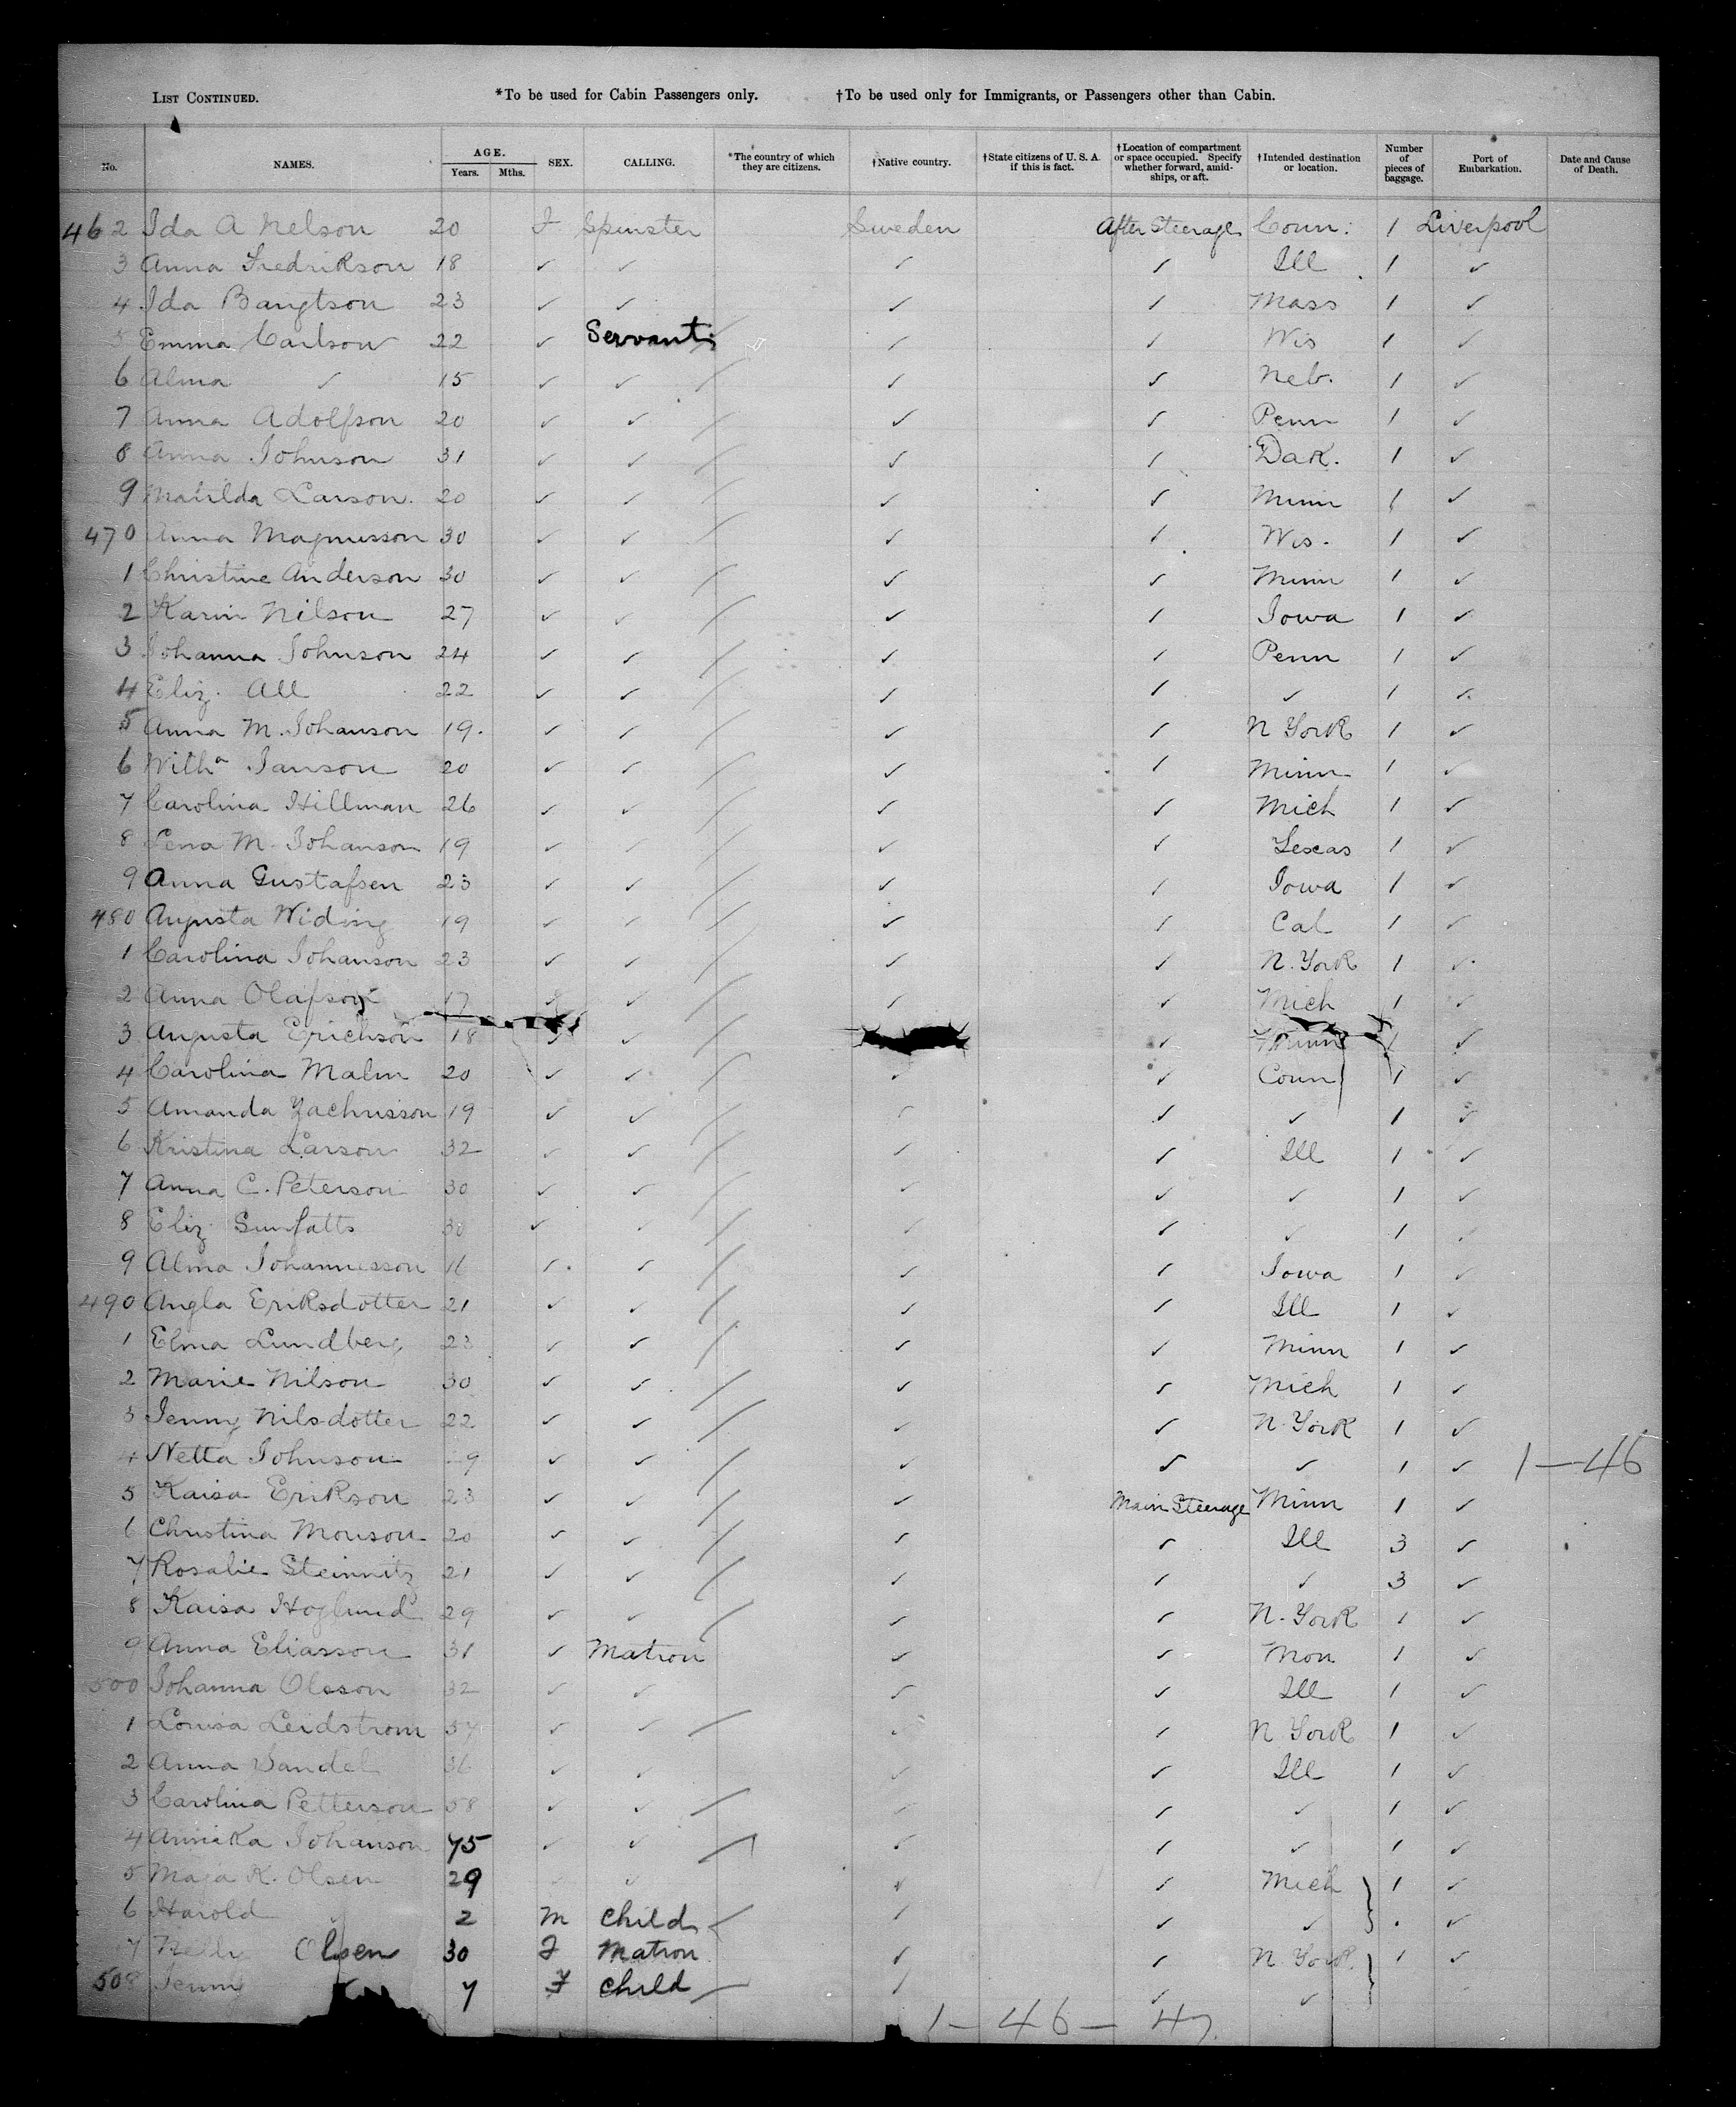 List Continued. *To be used for Cabin Passengers only. †To be used only for Immigrants, or Passengers other than Cabin.
No. NAMES. AGE. Years. Mths. SEX. CALLING. *The country of which they are citizens. †Native country. †State citizens of U. S. A. if this is fact. †Location of compartment or space occupied. Specify whether forward, amidships, or aft. †Intended destination or location. Number of pieces of baggage. Port of Embarkation. Date and Cause of Death.
462 Ida A Nelson 20 F Spinster Sweden After Steerage Conn: 1 Liverpool
3 Anna Fredrikson 18 ✓ ✓ ✓ ✓ Ill 1 ✓
4 Ida Bangtson 23 ✓ ✓ ✓ ✓ Mass 1 ✓
5 Emma Carlson 22 ✓ Servant ✓ ✓ Wis 1 ✓
6 Alma ✓ 15 ✓ ✓ ✓ ✓ Neb. 1 ✓
7 Anna Adolfson 20 ✓ ✓ ✓ ✓ Penn 1 ✓
8 Anna Johnson 31 ✓ ✓ ✓ ✓ Dak. 1 ✓
9 Matilda Larson 20 ✓ ✓ ✓ ✓ Minn 1 ✓
470 Anna Magnusson 30 ✓ ✓ ✓ ✓ Wis. 1 ✓
1 Christine Anderson 30 ✓ ✓ ✓ ✓ Minn 1 ✓
2 Karin Nilson 27 ✓ ✓ ✓ ✓ Iowa 1 ✓
3 Johanna Johnson 24 ✓ ✓ ✓ ✓ Penn 1 ✓
4 Eliz. All 22 ✓ ✓ ✓ ✓ ✓ 1 ✓
5 Anna M. Johanson 19. ✓ ✓ ✓ ✓ N York 1 ✓
6 Wilhª Janson 20 ✓ ✓ ✓ ✓ Minn 1 ✓
7 Carolina Hillman 26 ✓ ✓ ✓ ✓ Mich 1 ✓
8 Lena M. Johanson 19 ✓ ✓ ✓ ✓ Texas 1 ✓
9 Anna Gustafsen 23 ✓ ✓ ✓ ✓ Iowa 1 ✓
480 Augusta Widing 19 ✓ ✓ ✓ ✓ Cal 1 ✓
1 Carolina Johanson 23 ✓ ✓ ✓ ✓ N. York 1 ✓
2 Anna Olafson 17 ✓ ✓ ✓ ✓ Mich 1 ✓
3 Augusta Erichson 18 ✓ ✓ ✓ Minn 1 ✓
4 Carolina Malm 20 ✓ ✓ ✓ ✓ Conn 1 ✓
5 Amanda Zachrisson 19 ✓ ✓ ✓ ✓ ✓ 1 ✓
6 Kristina Larson 32 ✓ ✓ ✓ ✓ Ill 1 ✓
7 Anna C. Peterson 30 ✓ ✓ ✓ ✓ ✓ 1 ✓
8 Eliz. 30 ✓ ✓ ✓ ✓ ✓ 1 ✓
9 Alma Johannesson 16 ✓ ✓ ✓ ✓ Iowa 1 ✓
490 Angla Eriksdotter 21 ✓ ✓ ✓ ✓ Ill 1 ✓
1 Elma Lundberg 23 ✓ ✓ ✓ ✓ Minn 1 ✓
2 Marie Nilson 30 ✓ ✓ ✓ ✓ Mich 1 ✓
3 Jenny Nilsdotter 22 ✓ ✓ ✓ ✓ N. York 1 ✓
4 Netta Johnson 9 ✓ ✓ ✓ ✓ ✓ 1 ✓ 1—46
5 Kaisa Erikson 23 ✓ ✓ ✓ Main Steerage Minn 1 ✓
6 Christina Monson 20 ✓ ✓ ✓ ✓ Ill 3 ✓
7 Rosalie Steinnitz 21 ✓ ✓ ✓ ✓ ✓ 3 ✓
8 Kaisa Hoglund 29 ✓ ✓ ✓ ✓ N. York 1 ✓
9 Anna Eliasson 31 ✓ Matron ✓ ✓ Mon 1 ✓
500 Johanna Olsson 32 ✓ ✓ ✓ ✓ Ill 1 ✓
1 Louisa Leidstrom ✓ ✓ ✓ ✓ N York 1 ✓
2 Anna Sandel 36 ✓ ✓ ✓ ✓ Ill 1 ✓
3 Carolina Petterson 58 ✓ ✓ ✓ ✓ ✓ 1 ✓
4 Annika Johanson 75 ✓ ✓ ✓ ✓ ✓ 1 ✓
5 Maja K. Olsen 29 ✓ ✓ ✓ ✓ Mich 1 ✓
6 Harold ✓ 2 M Child ✓ ✓ ✓ ✓
7 Nelly Olsen 30 F Matron ✓ ✓ N York 1 ✓
508 Jenny 7 F Child ✓ ✓ ✓
1—46—47.